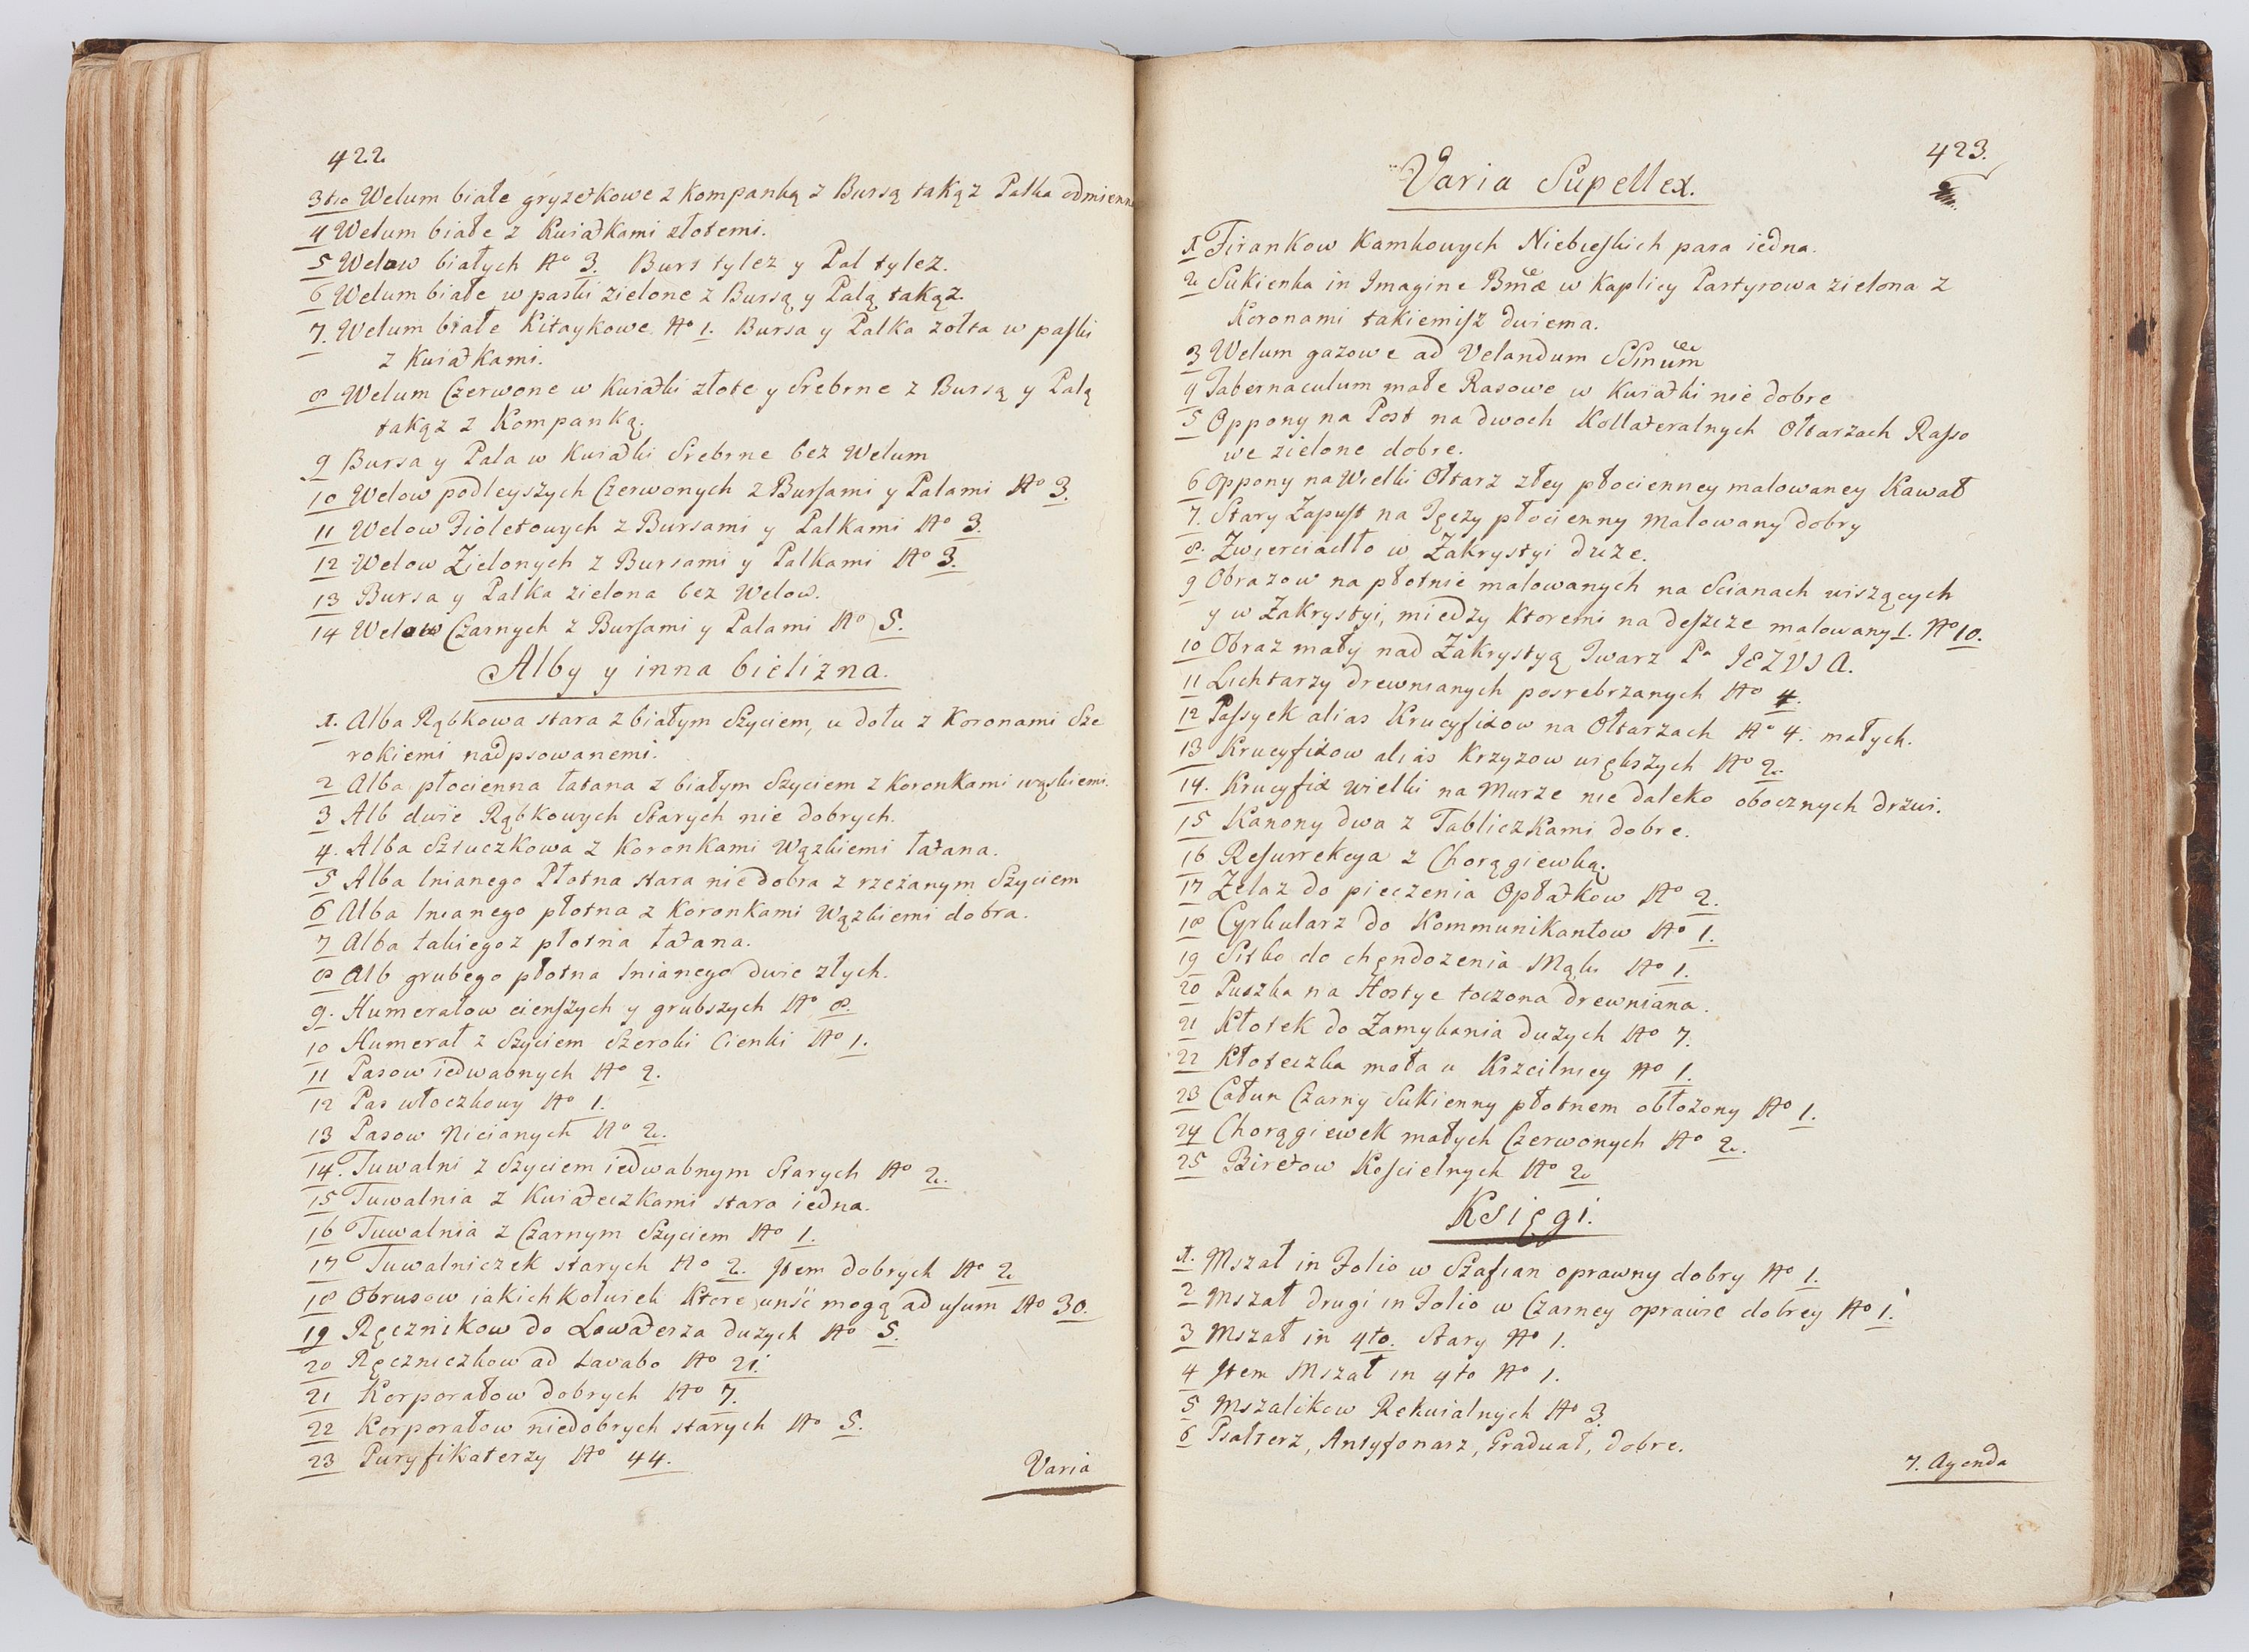 422
3tio Welum białe gryzetkowe z Kompanką z Bursą takąz Palka odmienn
4 Welum białe z Kwiatkami złotemi.
5 Welow białych No 3. Burs tylez y Pal tylez.
6 Welum białe w paski zielone z Bursą y Palą takąz.
7. Welum białe Kitaykowe No 1. Bursa y Palka zołta w paski
z Kwiatkami.
8 Welum Czerwone w Kwiatki złote y Srebrne z Bursą y Palą
takąz z Kompanką.
9 Bursa y Pala w Kwiatki Srebrne bez Welum
10 Welow podleyszych Czerwonych z Bursami y Palami No 3.
11 Welow Fioletowych z Bursami y Palkami No 3.
12 Welow Zielonych z Bursami y Palkami No 3.
13 Bursa y Palka zielona bez Welow.
14 Welow Czarnych z Bursami y Palami No 5.
Alby y inna bielizna.
1. Alba Rąbkowa stara z białym Szyciem, u dołu z Koronami Sze
rokiemi nadpsowanemi.
2 Alba płocienna łatana z białym Szyciem z Koronkami wąskiemi.
3 Alb dwie Rąbkowych Starych nie dobrych.
4. Alba Sztuczkowa z Koronkami Wązkiemi łatana.
5 Alba lnianego Płotna stara nie dobra z rzeżanym Szyciem
6 Alba lnianego płotna z Koronkami Wązkiemi dobra.
7 Alba takiegoz płotna łatana.
8 Alb grubego płotna lnianego dwie złych.
9. Humerałow cienszych y grubszych No 8.
10 Humerał z Szyciem Szeroki Cienki No 1.
11 Pasow iedwabnych No 2.
12 Pas włoczkowy No 1.
13 Pasow Nicianych No 2.
14. Tuwalni z Szyciem iedwabnym Starych No 2.
15 Tuwalnia z Kwiateczkami stara iedna.
16 Tuwalnia z Czarnym Szyciem No 1.
17 Tuwalniczek starych No 2. Item dobrych No 2
18 Obrusow iakichkolwiek Ktore mogą ad usum No 30.
19 Ręcznikow do Lawaterza duzych No 5.
20 Ręczniczkow ad Lavabo No 21.
21 Korporałow dobrych No 7.
22 Korporałow niedobrych starych No 5.
23 Puryfikaterzy No 44.
Varia
423.
Varia Supellex.
1 Firankow Kamkowych Niebieskich para iedna.
2 Sukienka in Imagine Bmæ w Kaplicy Partyrowa zielona z
Koronami takiemisz dwiema.
3 Welum gazowe ad Velandum SSmum
4 Tabernaculum małe Rasowe w Kwiatki nie dobre
5 Oppony na Post na dwoch Kollateralnych Ołtarzach Rasso
we zielone dobre.
6 Oppony na Wielki Ołtarz złey płocienney malowaney Kawał
7. Stary Zapust na Tęczy płocienny Malowany dobry
8. Zwierciadło w Zakrystyi duze.
9 Obrazow na płotnie malowanych na Scianach wiszących
y w Zakrystyi, miedzy Ktoremi na deszcze malowany 1. No 10.
10 Obraz mały nad Zakrystyą Twarz Pa JEZUSA.
11 Lichtarzy drewnianych posrebrzanych No 4.
12 Passyek alias Krucyfixow na Ołtarzach No 4. małych.
13 Krucyfixow alias Krzyzow większych No 2.
14. Krucyfix wielki na Murze nie daleko obocznych drzwi.
15 Kanony dwa z Tabliczkami dobre.
16 Resurrekcya z Chorągiewką.
17 Zelaz do pieczenia Opłatkow No 2.
18 Cyrkularz do Kommunikantow No 1.
19 Sitko do chędozenia Mąki No 1.
20 Puszka na Hostye toczona drewniana.
21 Kłotek do Zamykania duzych No 7.
22 Kłoteczka mała u Krzcilnicy No 1.
23 Całun Czarny Sukienny płotnem obłożony No 1.
24 Chorągiewek małych Czerwonych No 2.
25 Biretow Kościelnych No 2
Księgi.
1. Mszał in Folio w Szafian oprawny dobry No 1.
2 Mszał drugi in Folio w Czarney oprawie dobrey No 1.
3 Mszał in 4to. Stary No 1.
4 Item Mszał in 4to No 1.
5 Mszalikow Rekwialnych No 3.
6 Psałterz, Antyfonarz, Graduał, dobre.
7. Agenda